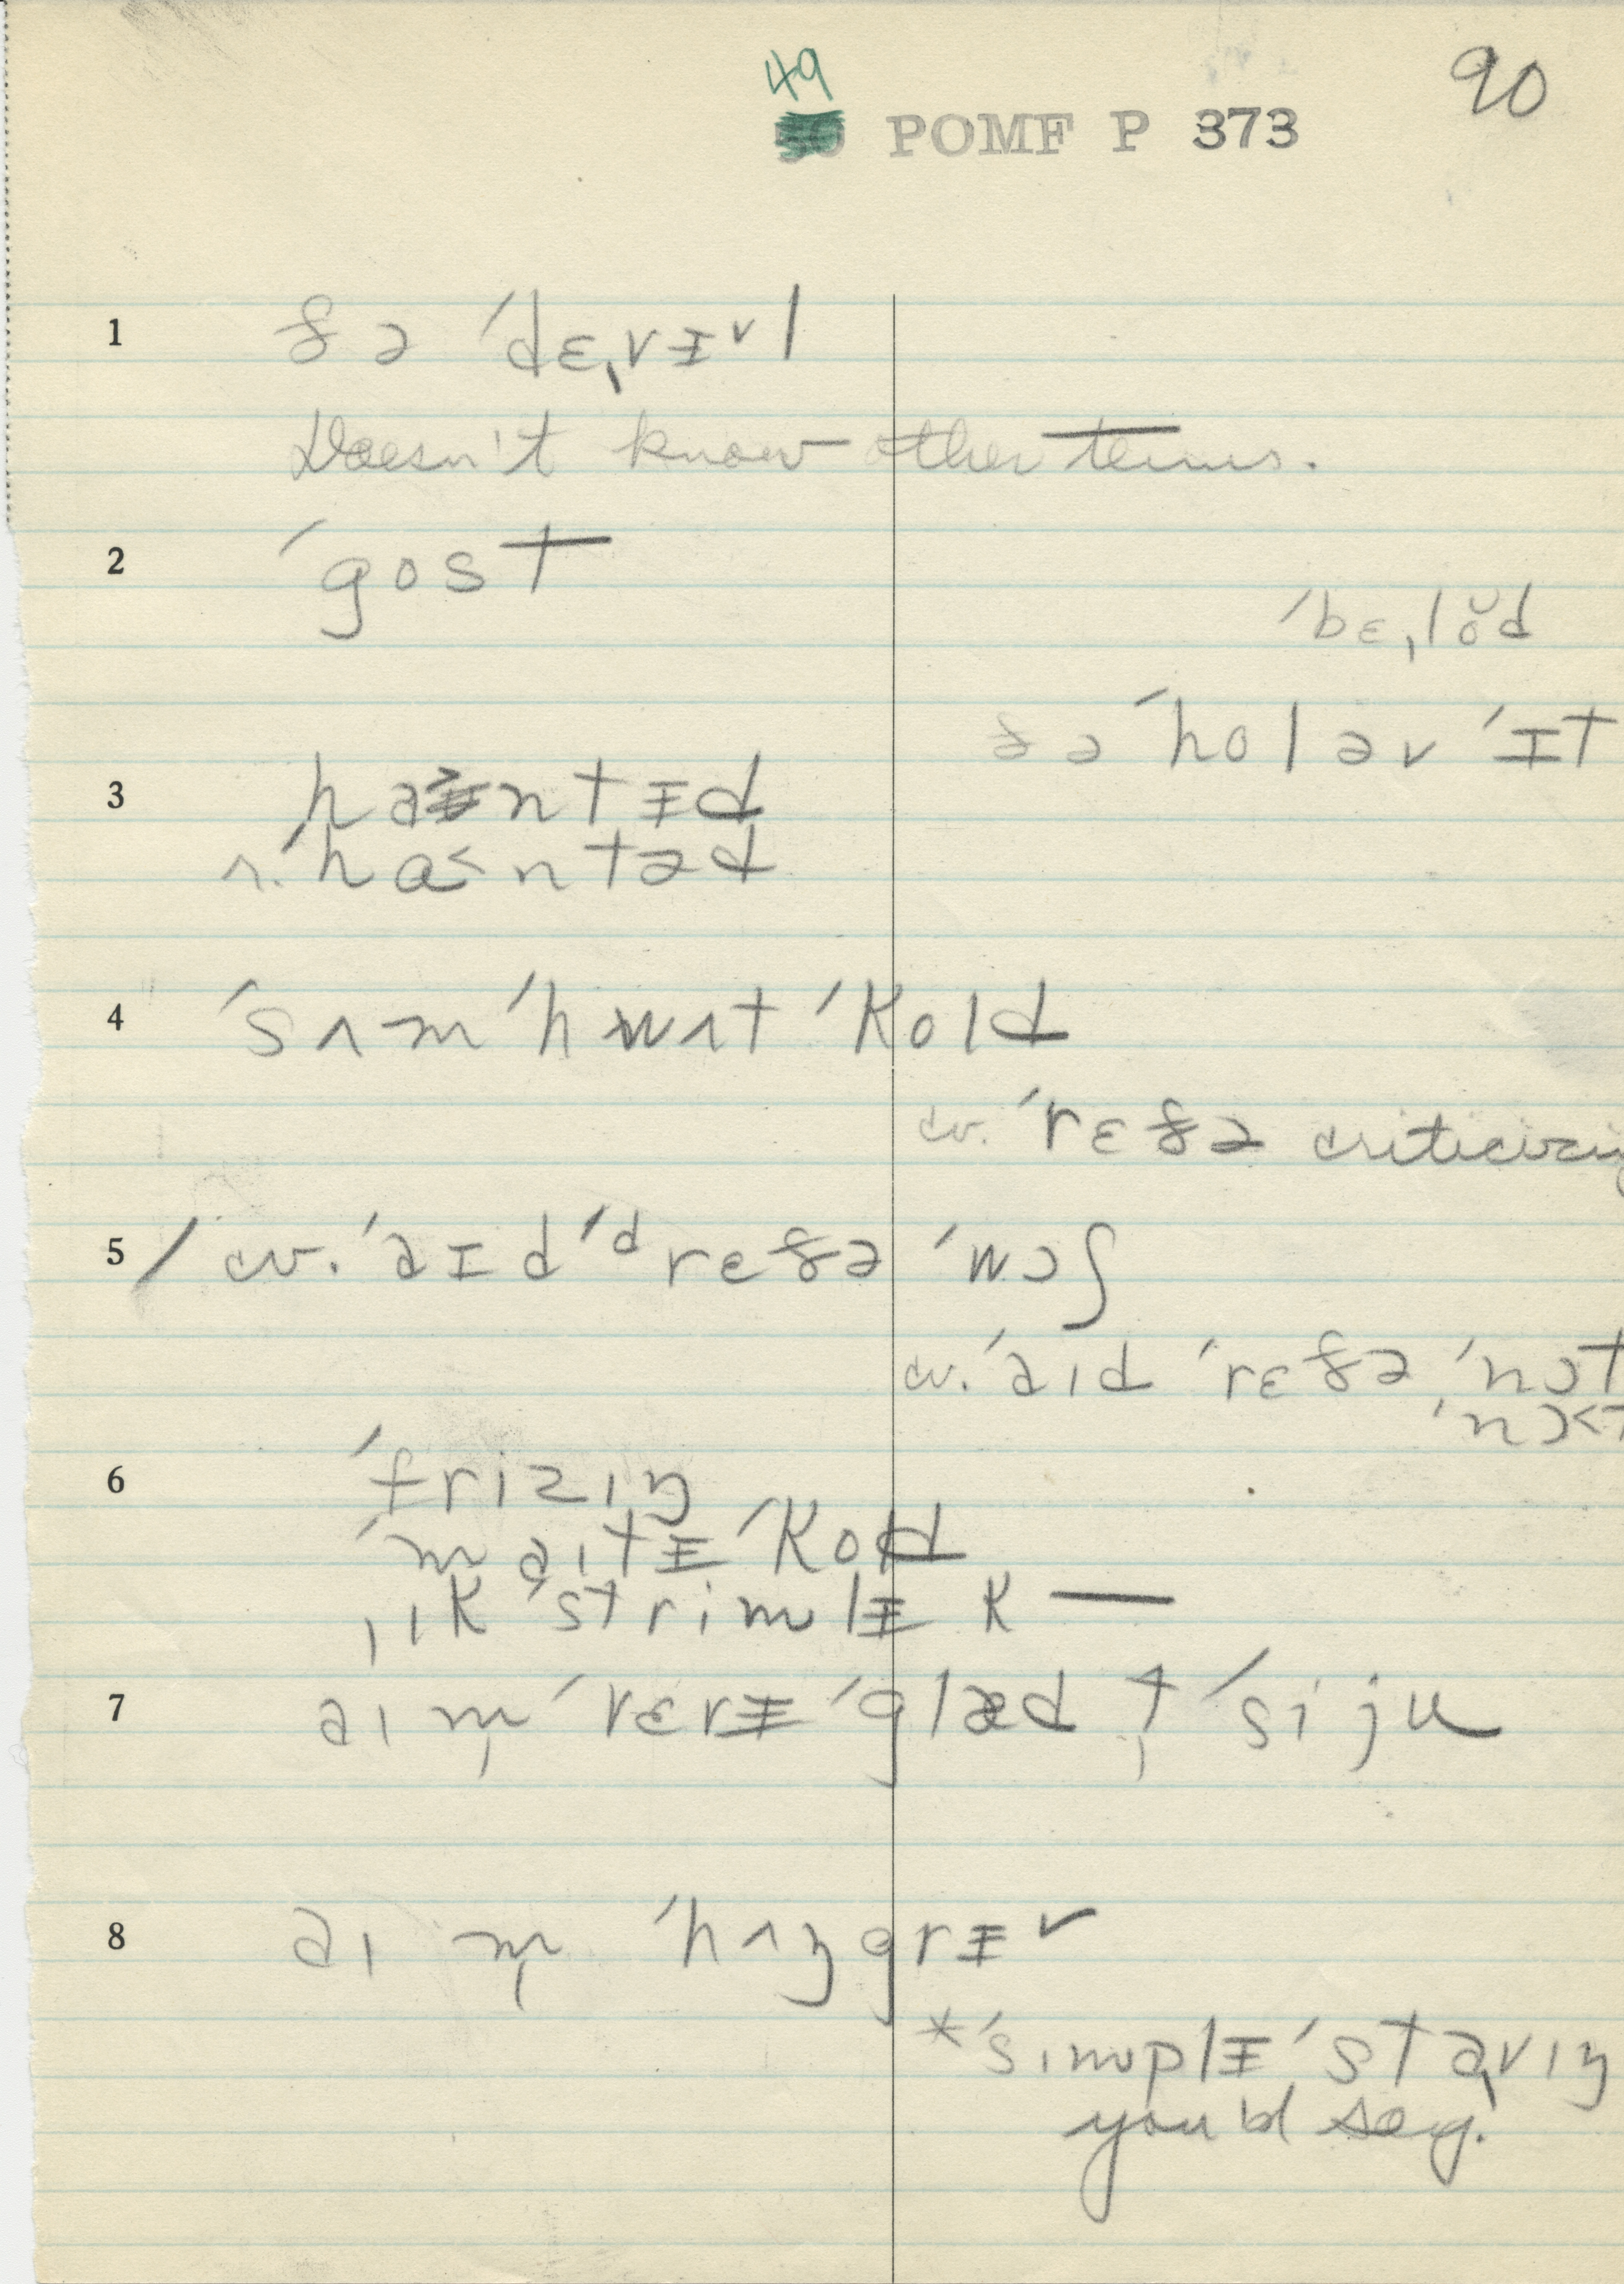 49
POMF P 373
90
1 ðə ˈdɛˌvɪˇl
Doesn't know other terms.
2 ˈgost
ˈbɛˌlŏd
ðə ˈholəv ˈɪt
3 hantɨd
r. ˈha˂ntəd
4 ˈsʌmˈhwʌt ˈkold
cv. ˈrɛðə criticizing
5 / cv. ˈaɪd ˈdrɛðə ˈwɔʃ
cv. ˈaıd ˈrɛðə ˈnɔt
ˈnɔ˂t
6 ˈfrizıŋ
ˈmaıtɨ ˈkold
ˌık ˈstrimlɨ k —
7 aım̩ ˈvɛrɨ ˈglæd t̩ ˈsi ju
8 aı m̩ ˈhʌŋgrɨˇ
*ˈsımplɨ ˈstɑˌvıŋ
you'd say.